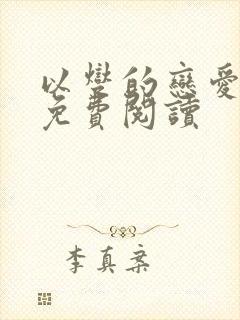 以的戀愛
免費閱讀
李真